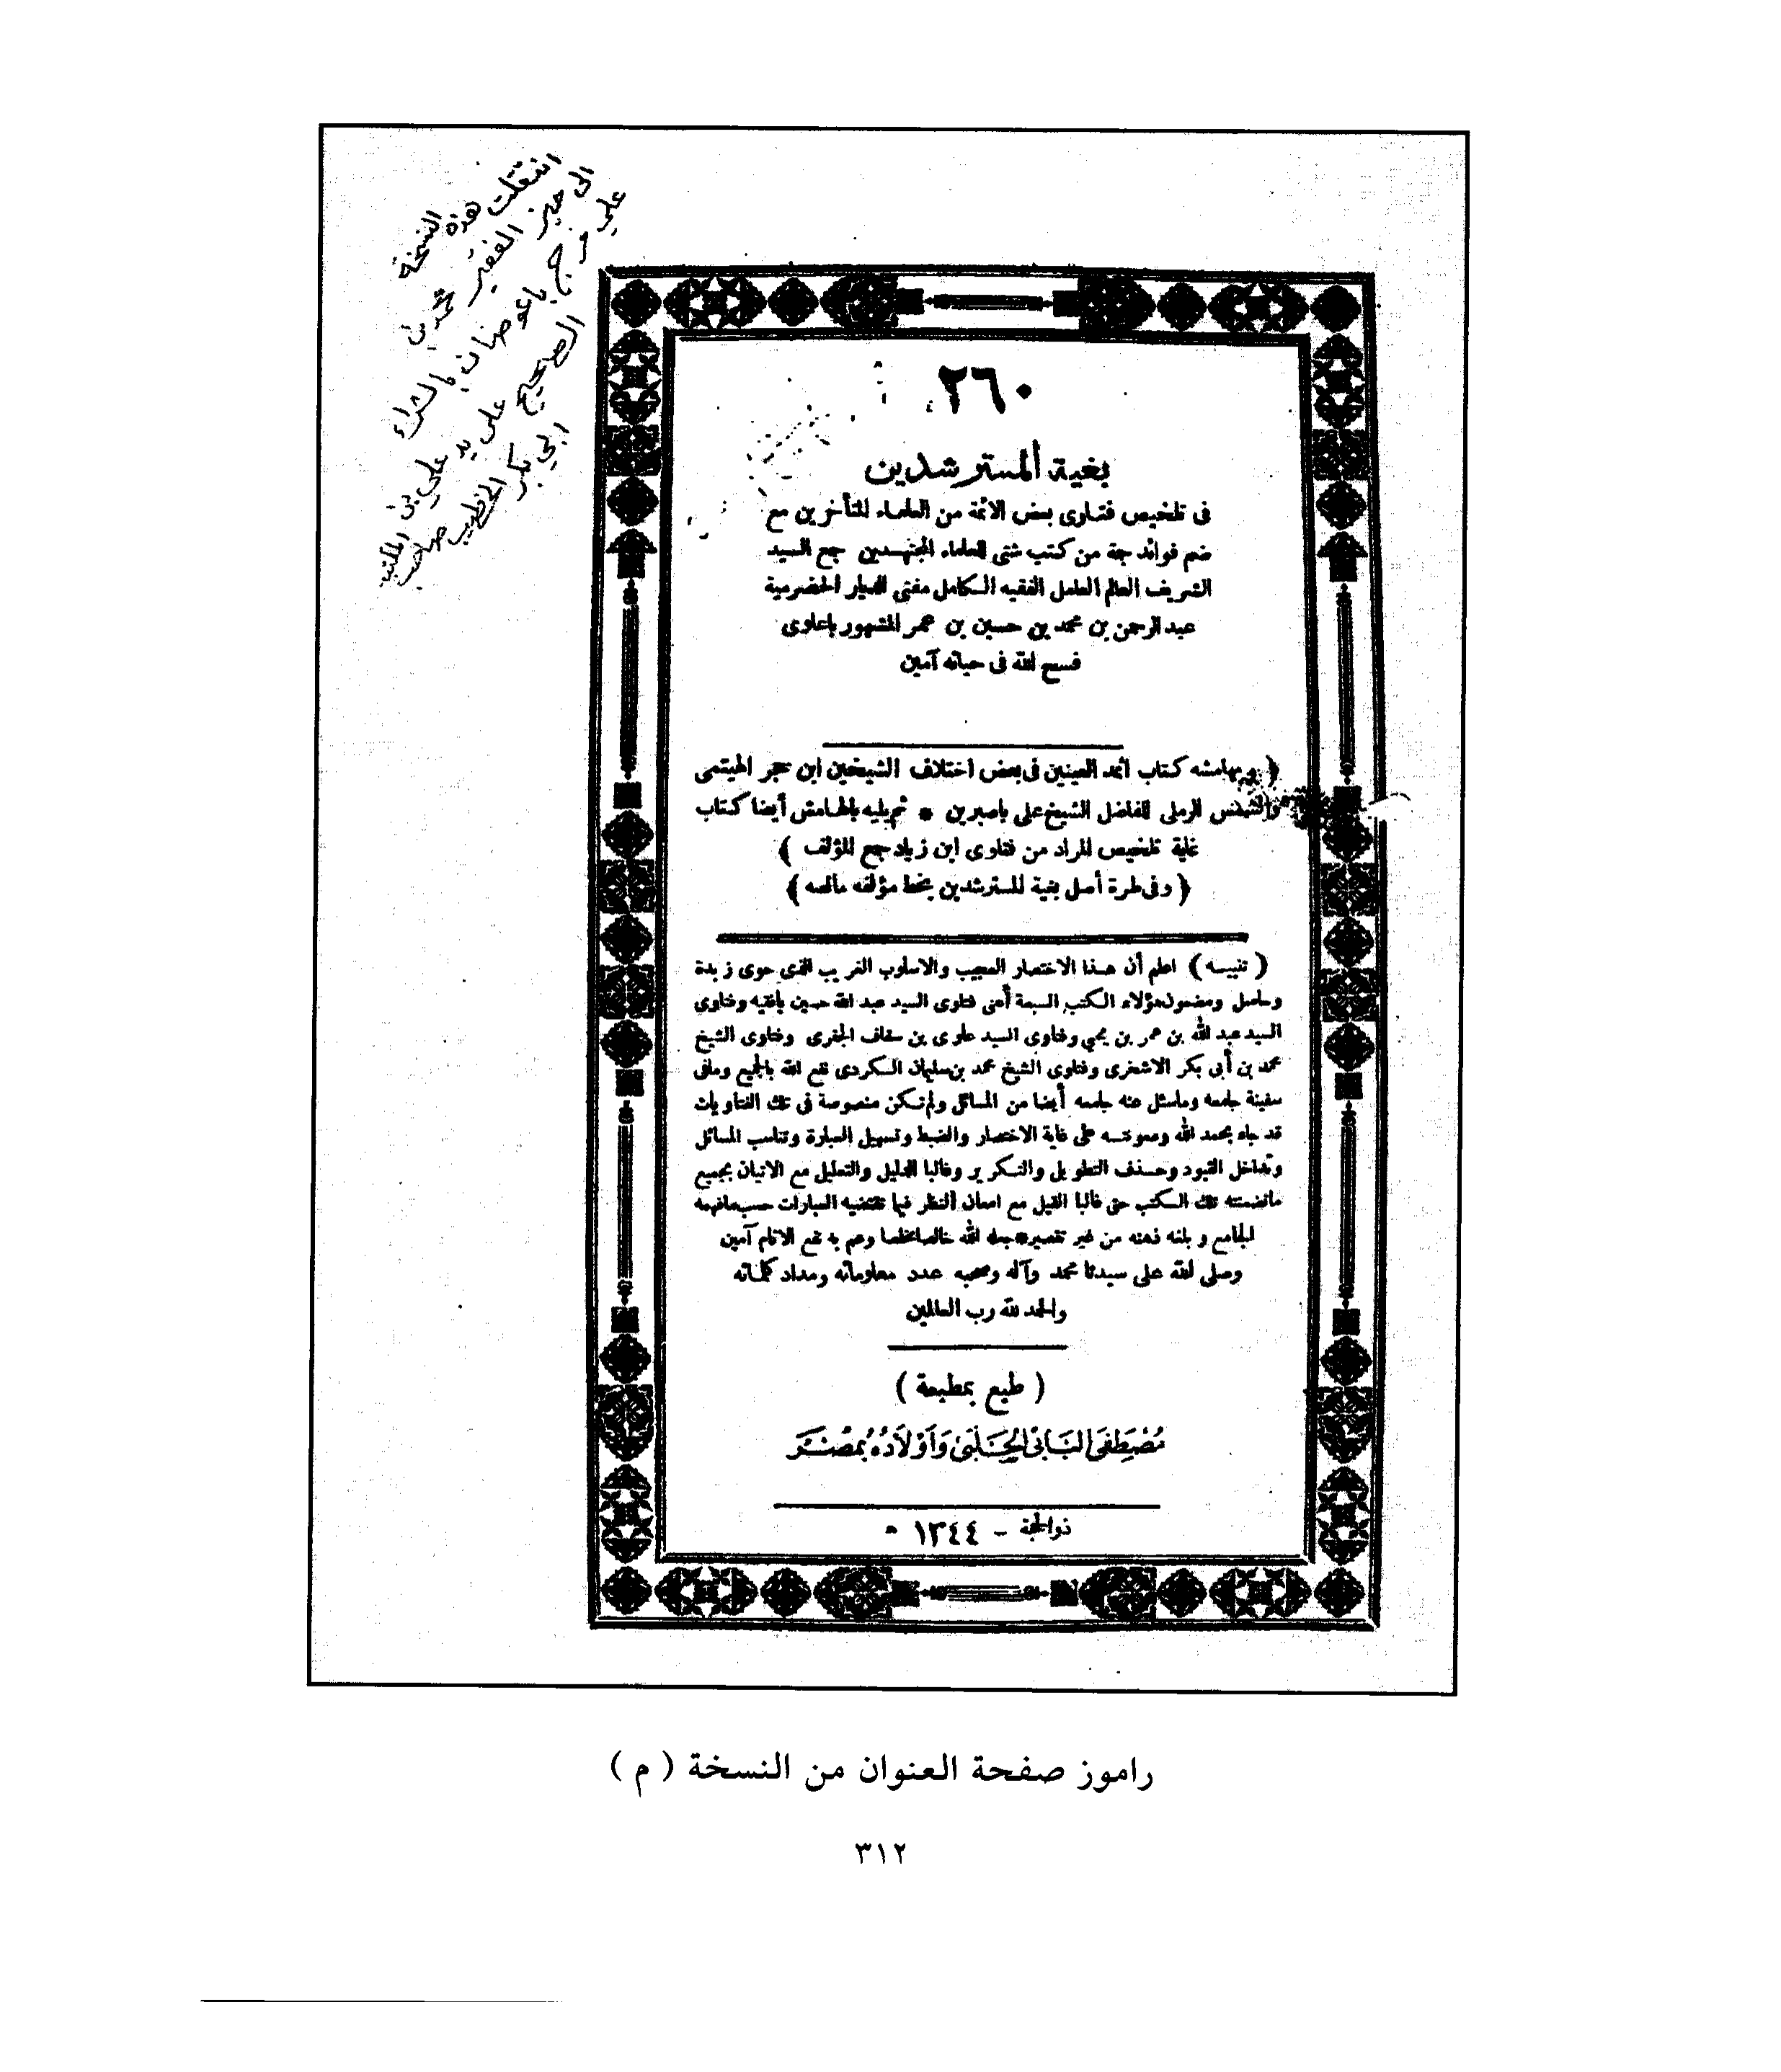 انتقلت هذه النسخة
الى حيز الفقير محمد بن
علي فرج باعوضان بالشراء
الصحيح على يد علي بن
ابي بكر الخطيب صاحب المكتبة
٢٦٠
بغية المسترشدين
فى تلخيص فتاوى بعض الائمة من العلماء المتأخرين مع
ضم فوائد جمة من كتب شتى للعلماء المجتهدين جمع السيد
الشريف العالم العامل الفقيه الكامل مفتى الديار الحضرمية
عبد الرحمن بن محمد بن حسين بن عمر المشهور باعلوى
فسح الله فى حياته آمين
( وبهامشه كتاب اثمد العينين فى بعض اختلاف الشيخين ابن حجر الهيتمى
والشمس الرملى للفاضل الشيخ على باصبرين * ثم يليه بالهامش أيضا كتاب
غاية تلخيص المراد من فتاوى ابن زياد جمع المؤلف )
( وفى طرة أصل بغية المسترشدين بخط مؤلفه مانصه )
( تنبيه ) اعلم أن هذا الاختصار العجيب والاسلوب الغريب الذى حوى زبدة
وحاصل ومضمون هؤلاء الكتب السبعة أعنى فتاوى السيد عبد الله حسين بافقيه وفتاوى
السيد عبد الله بن عمر بن يحيى وفتاوى السيد علوى بن سقاف الجفرى وفتاوى الشيخ
محمد بن أبى بكر الاشخرى وفتاوى الشيخ محمد بن سليمان الكردى نفع الله بالجميع ومافى
سفينة جامعه وماسئل عنه جامعه أيضا من المسائل ولم تكن منصوصة فى تلك الفتاويات
قد جاء بحمد الله ومعونته على غاية الاختصار والضبط وتسهيل العبارة وتناسب المسائل
وتداخل القيود وحذف التطويل والتكرير وغالبا الدليل والتعليل مع الاتيان بجميع
ماتضمنته تلك الكتب حتى غالبا القيل مع امعان النظر فيما تقتضيه العبارات حسب مافهمه
الجامع وبلغه ذهنه من غير تقصير * جعله الله خالصا مخلصا وعم به نفع الانام آمين
وصلى الله على سيدنا محمد وآله وصحبه عدد معلوماته ومداد كلماته
والحمد لله رب العالمين
( طبع بمطبعة )
مُصْطَفَى البَابِى الحَلَبِى وَأَوْلَادُهُ بِمِصْر
ذو الحجة - ١٣٤٤ ه
راموز صفحة العنوان من النسخة ( م )
٣١٢